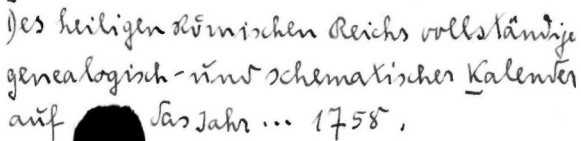 Des heiligen Römischen Reichs vollständige
genealogisch-und schematischer Kalender
auf das Jahr ... 1758.